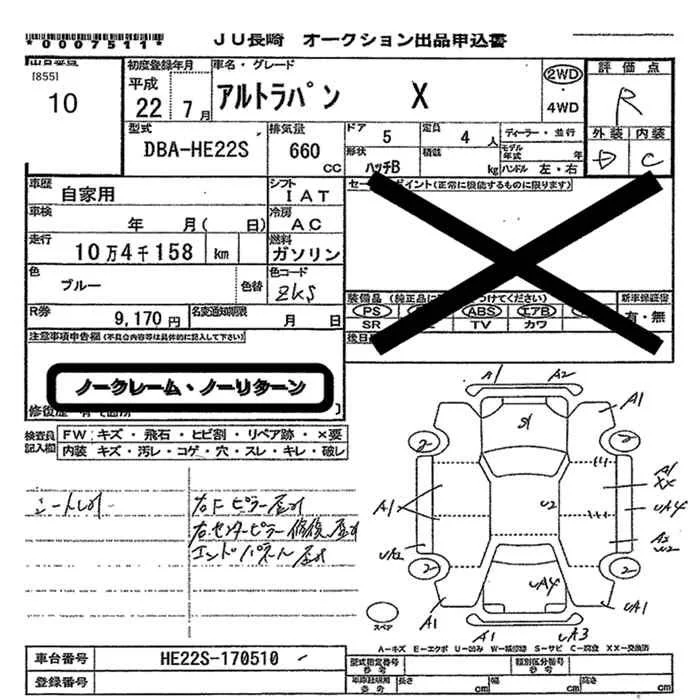 *0007511*
JU長崎 オークション出品申込書
出品番号
[855]
10
初度登録年月
平成
22 7月
車名・グレード
アルトラパン X
2WD
・
4WD
評価点
R
外装 内装
D C
型式
DBA-HE22S
排気量
660
CC
ドア
5
定員
4人
形状
ハッチB
積載
kg
ディーラー・並行
モデル
年式 年
ハンドル 左・右
車歴
自家用
シフト
IAT
車検
年 月( 日)
冷房
AC
走行
10万4千158 km
燃料
ガソリン
色
ブルー
色替
色コード
ZKS
R券
9,170円
名変通知期限
月 日
セールスポイント(正常に機能するものに限ります)
装備品
PS
ABS
エアB
SR
TV
カワ
新車保証書
有・無
後日
注意事項申告欄(不具合内容等は具体的に記入して下さい)
ノークレーム・ノーリターン
修復歴
検査員
記入欄
FW キズ・飛石・ヒビ割・リペア跡・×要
内装 キズ・汚レ・コゲ・穴・スレ・キレ・破レ
右Fピラー
右センターピラー修復
エンドパネル
A1 A2
S1
A1
2 2
A1
XX
A1
U2
UA4
UA2
A2
U2
2 2
UA4
A1
UA1
スペア
A1 UA3
A-キズ E-エクボ U-凹み W-補修跡 S-サビ C-腐食 XX-交換済
車台番号
HE22S-170510
登録番号
型式指定番号
参考
類別区分番号
参考
長さ cm
幅 cm
高さ cm